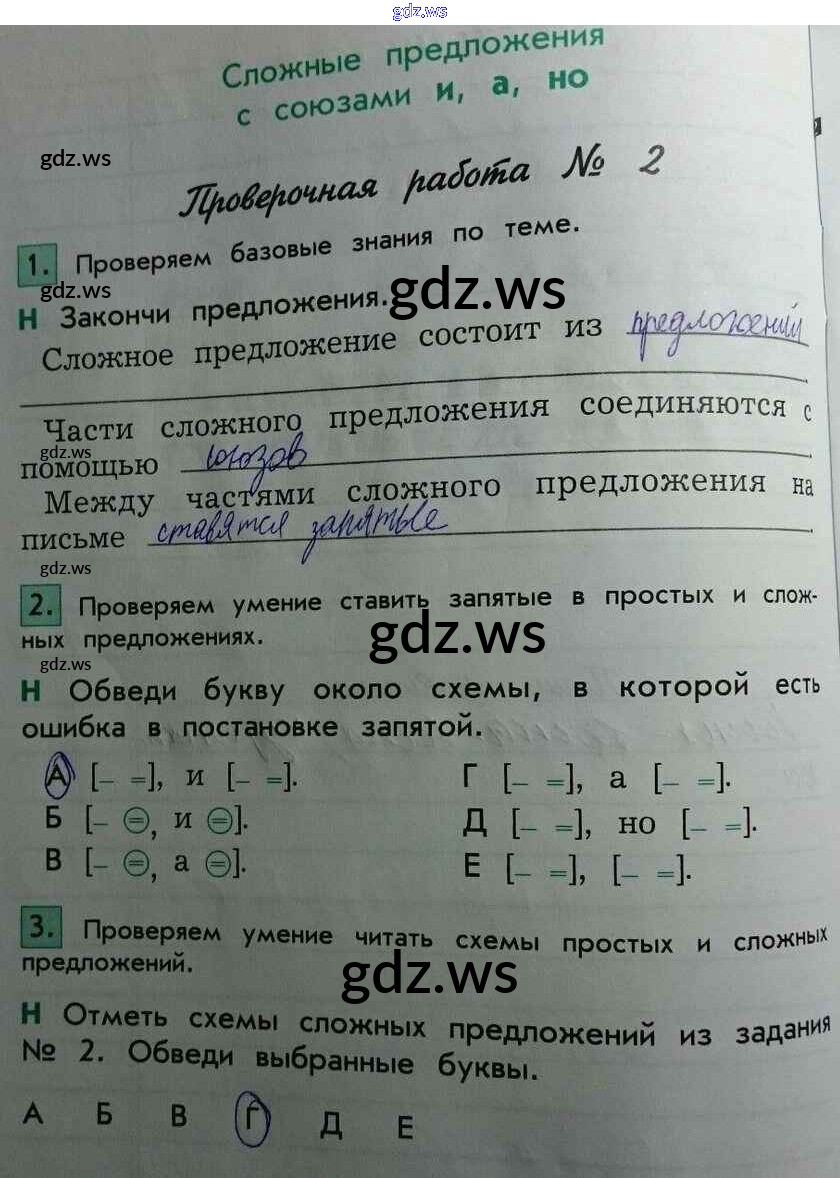 gdz.ws
Сложные предложения
с союзами и, а, но
gdz.ws
Проверочная работа № 2
1. Проверяем базовые знания по теме.
gdz.ws
gdz.ws
Н Закончи предложения.
Сложное предложение состоит из предложений
Части сложного предложения соединяются с
gdz.ws
помощью союзов
Между частями сложного предложения на
письме ставятся запятые
gdz.ws
2. Проверяем умение ставить запятые в простых и слож-
ных предложениях.
gdz.ws
gdz.ws
Н Обведи букву около схемы, в которой есть
ошибка в постановке запятой.
А [– =], и [– =].
Г [– =], а [– =].
Б [– =, и =].
Д [– =], но [– =].
В [– =, а =].
Е [– =], [– =].
3. Проверяем умение читать схемы простых и сложных
предложений.
gdz.ws
Н Отметь схемы сложных предложений из задания
№ 2. Обведи выбранные буквы.
А Б В Г Д Е